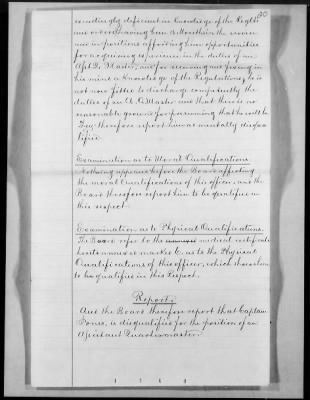 20
exceedingly deficient in Knowledge of the Regltns
and or orders having been a Month in the service
and in positions affording him opportunities
for acquiring experience in the duties of an
Asst. Qr. Master, and for securing and fixing in
his mind a Knowledge of the Regulations, he is
not now fitted to discharge competently the
duties of an A. Q. Master and that there is no
reasonable ground for presuming that he will be
They therefore report him as mentally disqua-
lified.
Examination as to Moral Qualifications.
Nothing appears before the Board affecting
the moral Qualifications of this officer, and the
Board therefore report him to be qualified in
this respect.
Examination as to Physical Qualifications.
The Board refer to the medical certificate
hereto annexed marked C. as to the Physical
Qualifications of this officer, which shows him
to be qualified in this respect.
Report.
And the Board therefore report that Captain
Jones, is disqualified for the position of an
Assistant Quartermaster.